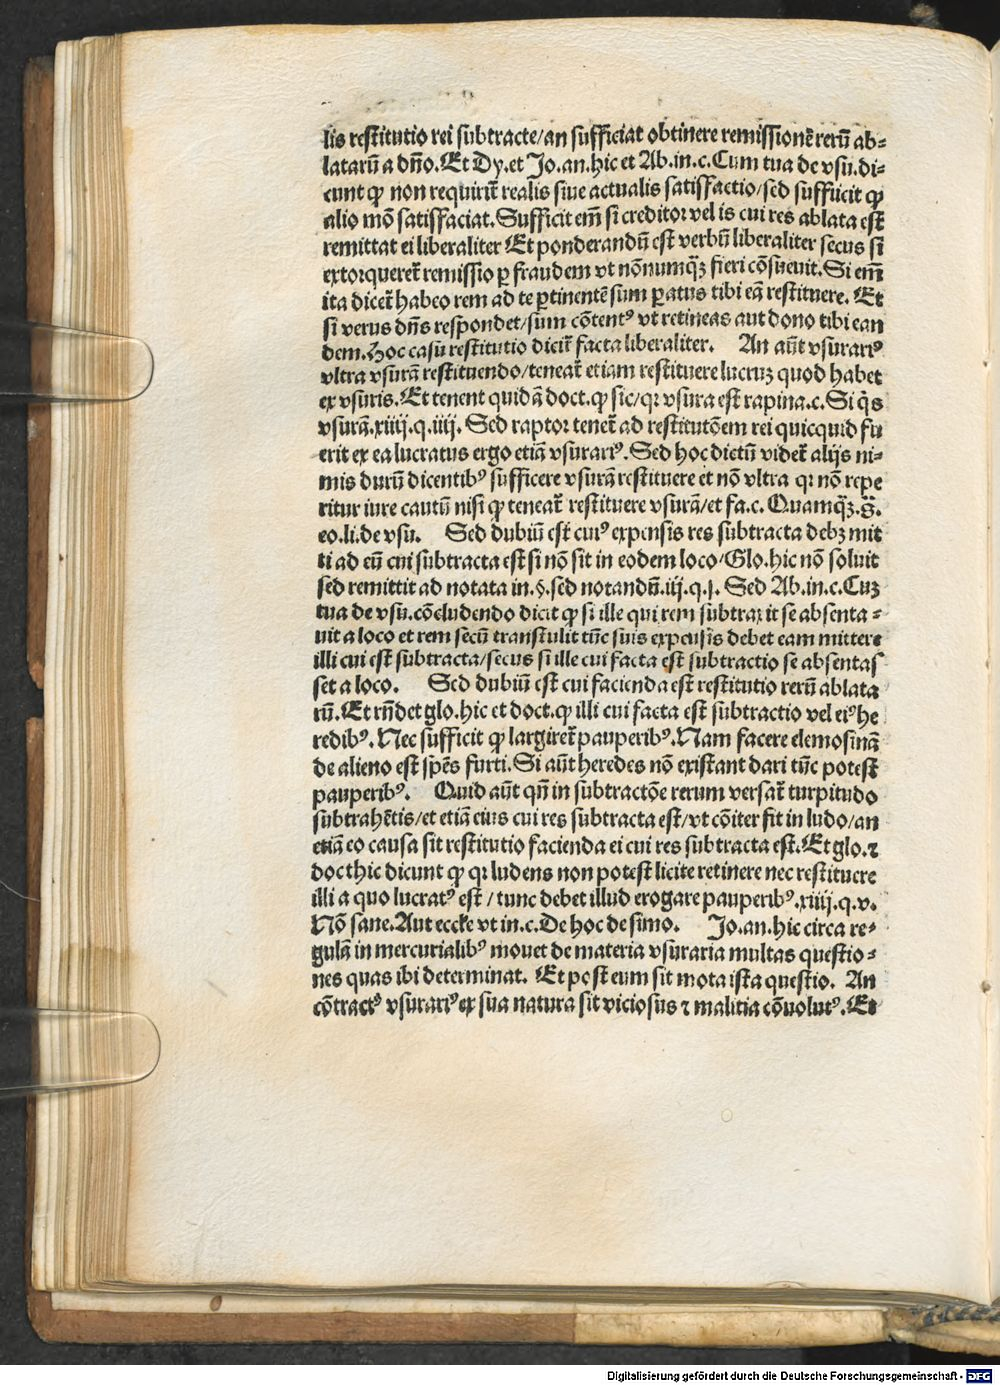 lis restitutio rei subtracte/an sufficiat obtinere remissionē rerū ab⸗
lataruꝫ a dño. Et Dy. et Jo. an. hic et Ab. in. c. Cum tua de vsu. di⸗
cunt ꝙ non requirit̃ realis siue actualis satisfactio/sed suffiicit ꝙ
alio mõ satisfaciat. Sufficit em̄ si creditor vel is cui res ablata est
remittat ei liberaliter Et ponderandū est verbū liberaliter secus si
extorqueret̃ remissio ꝑ fraudem vt nõnumqꝫ fieri cõsueuit. Si em̄
ita dicet̃ habeo rem ad te ꝑtinentē sum ꝑatus tibi eā restituere. Et
si verus dñs respondet/sum cõtentꝰ vt retineas aut dono tibi ean
dem. Hoc casū restitutio dicit̃ facta liberaliter. An aūt vsurariꝰ
vltra vsurā restituendo/teneat̃ etiam restituere lucruꝫ quod habet
ex vsuris. Et tenent quidā doct. ꝙ sic/qꝛ vsura est rapina. c. Si q̄s
vsurā. xiiij. q. iiij. Sed raptor tenet̃ ad restitutõem rei quicquid fu
erit ex ea lucratus ergo etiā vsurariꝰ. Sed hoc dictū videt̃ alijs ni⸗
mis durū dicentibꝰ sufficere vsurā restituere et nõ vltra qꝛ nõ repe
ritur iure cautū nisi ꝙ teneat̃ restituere vsurā/et fa. c. Quamqꝫ. §.
eo. li. de vsu. Sed dubiū est cuiꝰ expensis res subtracta debꝫ mit
ti ad eū cui subtracta est si nõ sit in eodem loco/Glo. hic nõ soluit
sed remittit ad notata in. §. sed notandū. iij. q. j. Sed Ab. in. c. Cuꝫ
tua de vsu. cõcludendo dicit ꝙ si ille qui rem subtraxit se absenta⸗
uit a loco et rem secū transtulit tūc suis expensis debet eam mittere
illi cui est subtracta/secus si ille cui facta est subtractio se absentas
set a loco. Sed dubiū est cui facienda est restitutio rerū ablata
rū. Et rn̄det glo. hic et doct. ꝙ illi cui facta est subtractio vel eiꝰ he
redibꝰ. Nec sufficit ꝙ largiret̃ pauperibꝰ. Nam facere elemosinā
de alieno est spēs furti. Si aūt heredes nõ existant dari tūc potest
pauperibꝰ. Quid aūt qn̄ in subtractõe rerum versat̃ turpitudo
subtrahētis/et etiā eius cui res subtracta est/vt cõiter fit in ludo/an
etiā eo causa sit restitutio facienda ei cui res subtracta est. Et glo. ⁊
doct hic dicunt ꝙ qꝛ ludens non potest licite retinere nec restituere
illi a quo lucratꝰ est/tunc debet illud erogare pauperibꝰ. xiiij. q. v.
Nõ sane. Aut eccłe vt in. c. De hoc de simo. Jo. an. hic circa re⸗
gulā in mercurialibꝰ mouet de materia vsuraria multas questio⸗
nes quas ibi determinat. Et post eum sit mota ista questio. An
cõtractꝰ vsurariꝰ ex sua natura sit viciosus ⁊ malitia cõuolutꝰ. Et
Digitalisierung gefördert durch die Deutsche Forschungsgemeinschaft - DFG